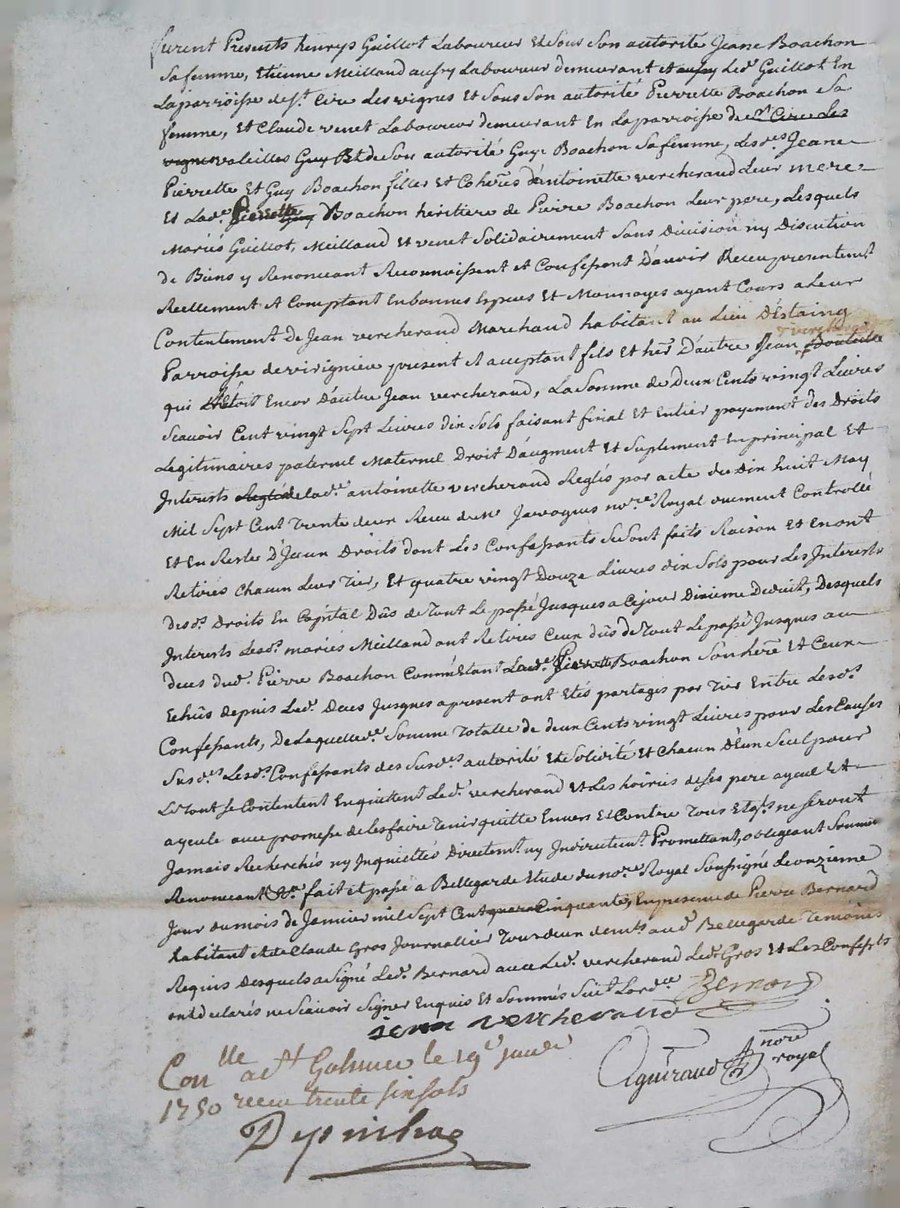 furent Presents henrys Guillot Laboureur et sous son autorité Jeane Boachon
sa femme, Etienne Meilland aussy Laboureur demeurant et aussy Led. Guillot En
La parroisse de st. Cire Les vignes et sous son autorité Pierrette Boachon sa
femme, et Claude venet Laboureur demeurant En La parroisse de st Cire Les
vignes valeilles Guy Et de son autorité Guye Boachon sa femme, Lesd.es Jeane
Pierrette Et Guy Boachon filles et Cohers d'antoinette vercherand Leur mere
Et Lad.e Pierrette Guy Boachon héritiere de Pierre Boachon Leur pere, Lesquels
Mariés Guillot, Meilland et venet Solidairement Sans Division ny Discution
de Biens y Renonceant Reconnoissent et Confessent D'avoir Receu presentemt
Reellement et Comptant En bonnes Especes et Monnoyes ayant Cours a Leur
Contentement de Jean vercherand Marchand habitant au Lieu D'Estaing
Parroisse de virignieu present et acceptant fils et her D'autre Jean Bouteille
vercherand
qui Etoit Encor D'autre Jean vercherand, La Somme de Deux Cents vingt Livres
Scavoir Cent vingt Sept Livres dix Sols faisant final et Entier payement des Droits
Legitimaires paternel Maternel Droit D'augment et Suplement En principal et
Interests Reglé de Lad.e antoinette vercherand Reglés par acte du Dix huit May
Mil Sept Cent Trente deux Receu de Me Javogues no.re Royal duement Controllé
Et En Reste D'Iceux Droits dont Les Confessants Se sont faits Raison et En ont
Retirés Chacun Leur Tier, Et quatre vingt Douze Livres dix Sols pour Les Interests
desd.s Droits En Capital Dûs de Tout Le passé Jusques a Ce jour Dixieme Deduit, Desquels
Interests Lesd. mariés Meilland ont Retirés Ceux dûs de Tout Le passé Jusques au
deces dud. Pierre Boachon Comme Etant Lad.e Pierrette Boachon Son here et Ceux
Echûs depuis Led. Deces Jusques apresent ont Etés partagés par Tier Entre Lesd.s
Confessants, De Laquelle d.e Somme Totalle de deux Cents vingt Livres pour Les Causes
Susd.es Lesd.s Confessants des Susd.es autorité et Solidité et Chacun D'Eux Seul pour
Le Tout Se Contentent En quittent Led. vercherand et Les hoiries de Ses pere ayeul Et
ayeule avec promesse de Les faire Tenir quitte Envers et Contre Tous Et qls ne Seront
Jamais Recherchés ny Inquiettés Directemt ny Indirectemt. Promettant, obligeant Soumis
Renonceant &a. fait et passé a Bellegarde Etude du nore Royal Soussigné Le onzieme
Jour du mois de Janvier mil Sept Cent quara Cinquante, En presence de Pierre Bernard
habitant et de Claude Gros Journallier Tous deux demts aud. Bellegarde Temoins
Requis Desquels a Signé Led. Bernard avec Led. vercherand Led. Gros et Les Confessts
ont declarés ne Scavoir Signer Enquis Et Sommés Suit Lordce
Bernard
jean vercherand
Conlle a St Galmier le 19e janer
1750 receu trente six sols
Aguiraud nore royal